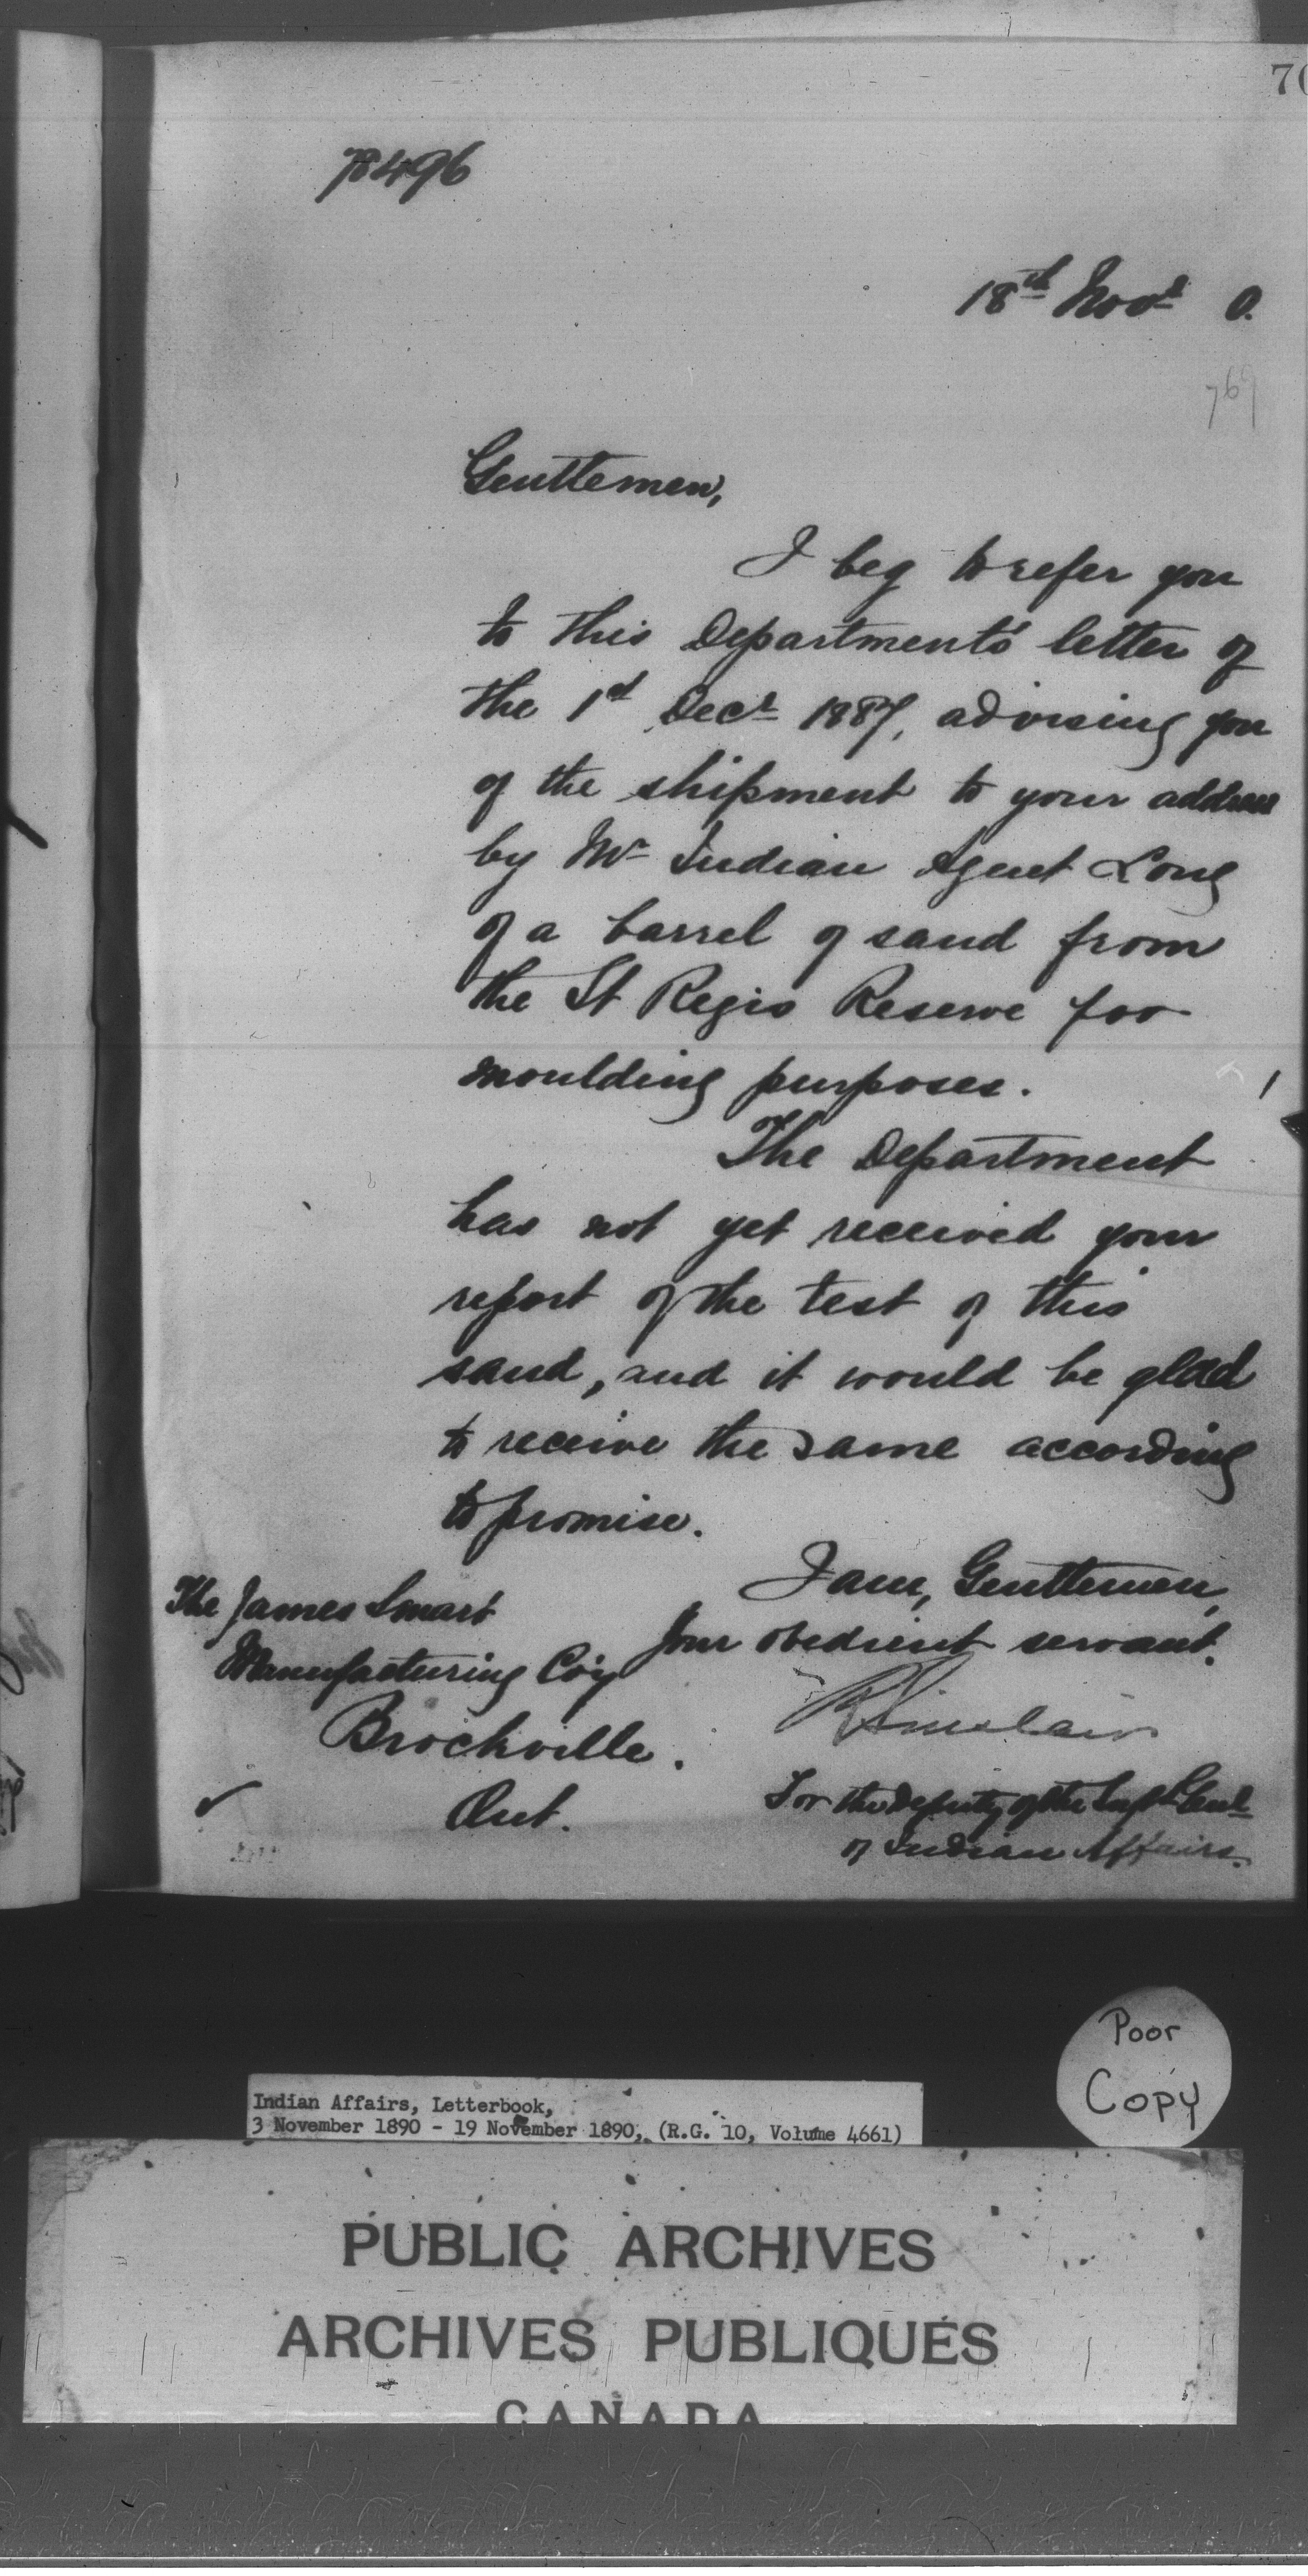 70
78496
18th Novr 0.
769
Gentlemen,
I beg to refer you
to this Department's letter of
the 1st Decr 1887, advising you
of the shipment to your address
by Mr Indian Agent Long
of a barrel of sand from
the St Regis Reserve for
moulding purposes.
The Department
has not yet received your
report of the test of this
sand, and it would be glad
to receive the same according
to promise.
I am, Gentlemen,
Your obedient servant.
R Sinclair
For the Deputy of the Supt Genl
of Indian Affairs.
The James Smart
Manufacturing Co'y
Brockville.
Ont.
Poor
Copy
Indian Affairs, Letterbook,
3 November 1890 - 19 November 1890, (R.G. 10, Volume 4661)
PUBLIC ARCHIVES
ARCHIVES PUBLIQUES
CANADA